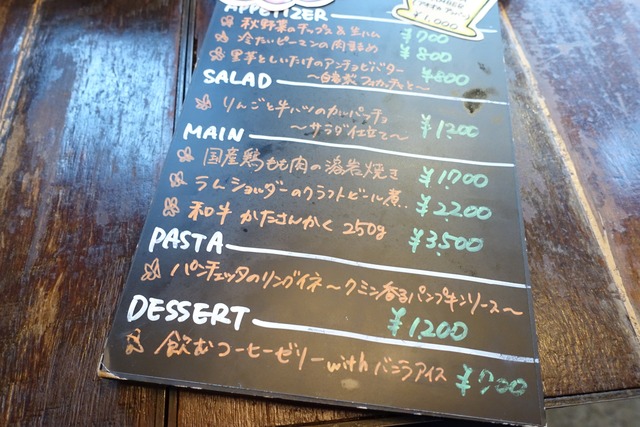 ¥1,000
APPETIZER
秋野菜のチップス&生ハム ¥700
冷たいピーマンの肉まるめ ¥800
里芋としいたけのアンチョビバター
〜自家製フォカッチャと〜 ¥800
SALAD
りんごと牛ハツのカルパッチョ
〜サラダ仕立て〜 ¥1,200
MAIN
国産鶏もも肉の溶岩焼き ¥1,700
ラムショルダーのクラフトビール煮.. ¥2200
和牛 かたさんかく 250g ¥3,500
PASTA
パンチェッタのリングイネ〜クミン香るパンプキンソース〜
¥1,200
DESSERT
飲むコーヒーゼリーwithバニラアイス ¥700